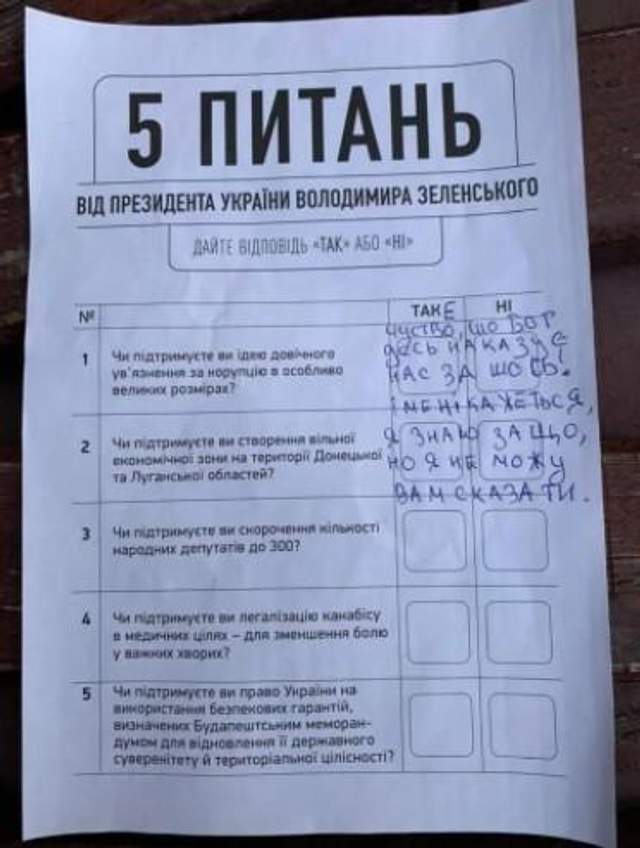 5 ПИТАНЬ
ВІД ПРЕЗИДЕНТА УКРАЇНИ ВОЛОДИМИРА ЗЕЛЕНСЬКОГО
ДАЙТЕ ВІДПОВІДЬ «ТАК» АБО «НІ»
№ ТАКЕ НІ
чуство, шо Бог
десь наказує
нас за шось.
І мені кажеться,
я знаю за що,
но я не можу
вам сказати.
1 Чи підтримуєте ви ідею довічного
ув'язнення за корупцію в особливо
великих розмірах?
2 Чи підтримуєте ви створення вільної
економічної зони на території Донецької
та Луганської областей?
3 Чи підтримуєте ви скорочення кількості
народних депутатів до 300?
4 Чи підтримуєте ви легалізацію канабісу
в медичних цілях – для зменшення болю
у важких хворих?
5 Чи підтримуєте ви право України на
використання безпекових гарантій,
визначених Будапештським меморан-
думом для відновлення її державного
суверенітету й територіальної цілісності?